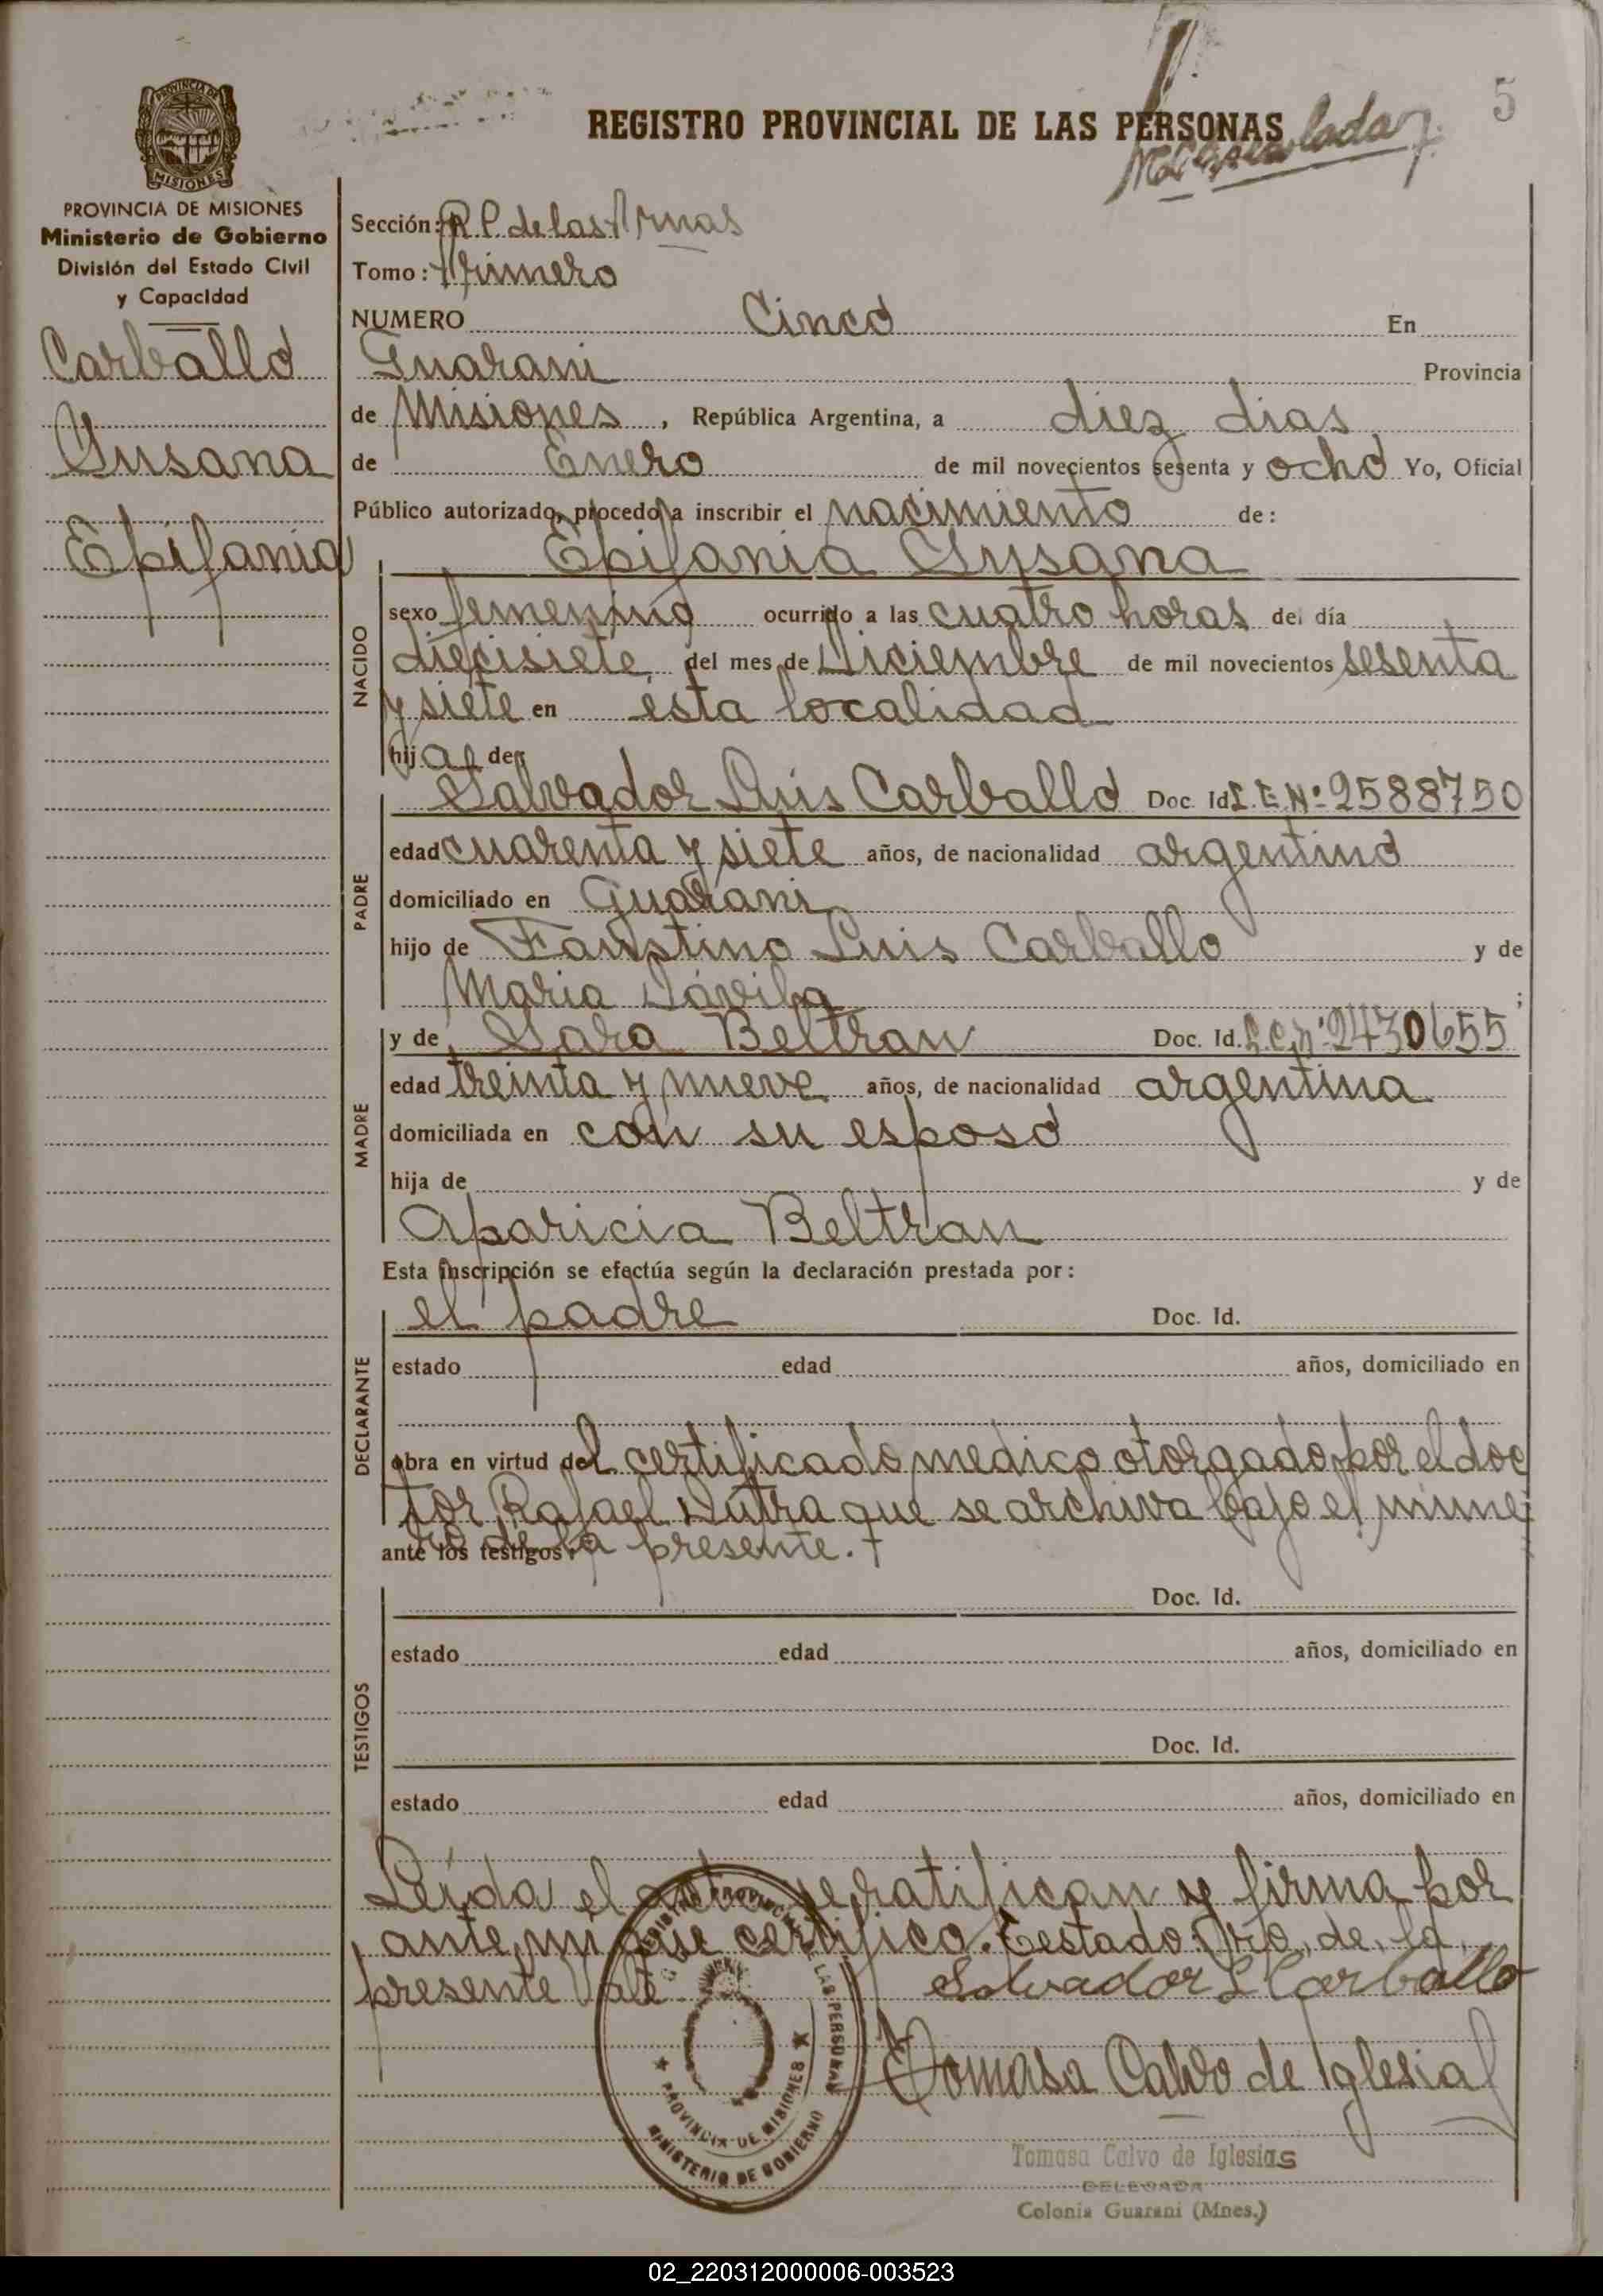 5
REGISTRO PROVINCIAL DE LAS PERSONAS
PROVINCIA DE MISIONES
Ministerio de Gobierno
División del Estado Civil
y Capacidad
Carballo
Susana
Epifania
Sección: R P de las Prnas
Tomo: Primero
NUMERO Cinco En
Guarani Provincia
de Misiones, República Argentina, a diez dias
de Enero de mil novecientos sesenta y ocho Yo, Oficial
Público autorizado, procedo a inscribir el nacimiento de:
Epifania Susana
NACIDO
sexo femenino ocurrido a las cuatro horas del día
diecisiete del mes de Diciembre de mil novecientos sesenta
y siete en esta localidad
hija de:
PADRE
Salvador Luis Carballo Doc. Id. L.E.Nº 2588750
edad cuarenta y siete años, de nacionalidad argentino
domiciliado en Guarani
hijo de Faustino Luis Carballo y de
Maria Dávila ;
MADRE
y de Sara Beltran Doc. Id. L.C.Nº 2430655
edad treinta y nueve años, de nacionalidad argentina
domiciliada en con su esposo
hija de y de
Aparicia Beltran
Esta inscripción se efectúa según la declaración prestada por:
DECLARANTE
el padre Doc. Id.
estado edad años, domiciliado en
obra en virtud del certificado medico otorgado por el doc
tor Rafael Dutra que se archiva bajo el núme
ro de la presente.
ante los testigos:
TESTIGOS
Doc. Id.
estado edad años, domiciliado en
Doc. Id.
estado edad años, domiciliado en
Leída el acta ratifican y firma por
ante mí que certifico. Testado: ro, de, la,
presente Vale
Salvador L Carballo
Tomasa Calvo de Iglesias
REGISTRO PROVINCIAL DE LAS PERSONAS
PROVINCIA DE MISIONES
MINISTERIO DE GOBIERNO
Tomasa Calvo de Iglesias
DELEGADA
Colonia Guarani (Mnes.)
02_220312000006-003523